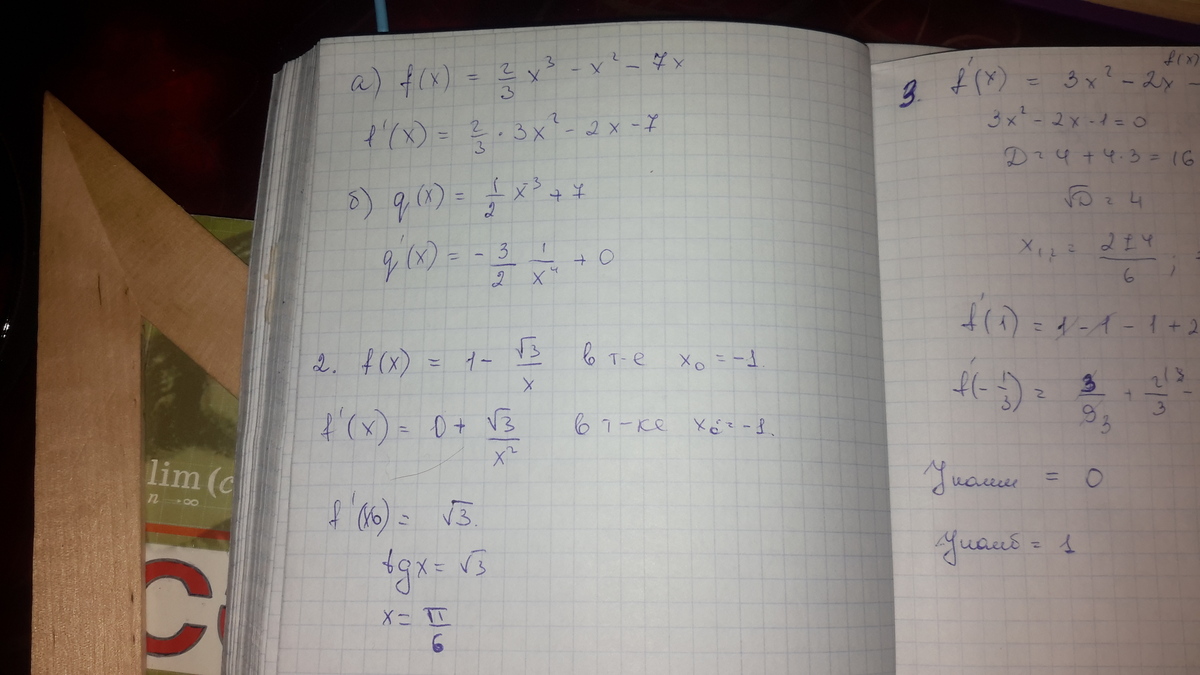 а) f(x) = 2/3 x³ - x² - 7x
f'(x) = 2/3 · 3x² - 2x - 7
б) q(x) = 1/2 x⁻³ + 7
q'(x) = - 3/2 1/x⁴ + 0
2. f(x) = 1 - √3/x в т-е x₀ = -1.
f'(x) = 0 + √3/x² в т-ке x₀ = -1.
f'(x₀) = √3.
tgx = √3
x = π/6
lim (c
n → ∞
f(x)
3. f'(x) = 3x² - 2x -
3x² - 2x - 1 = 0
D = 4 + 4·3 = 16
√D = 4
x₁,₂ = 2±4/6 ;
f'(1) = 1 - 1 - 1 + 2
f'(-1/3) =
Yнаим = 0
Yнаиб = 1